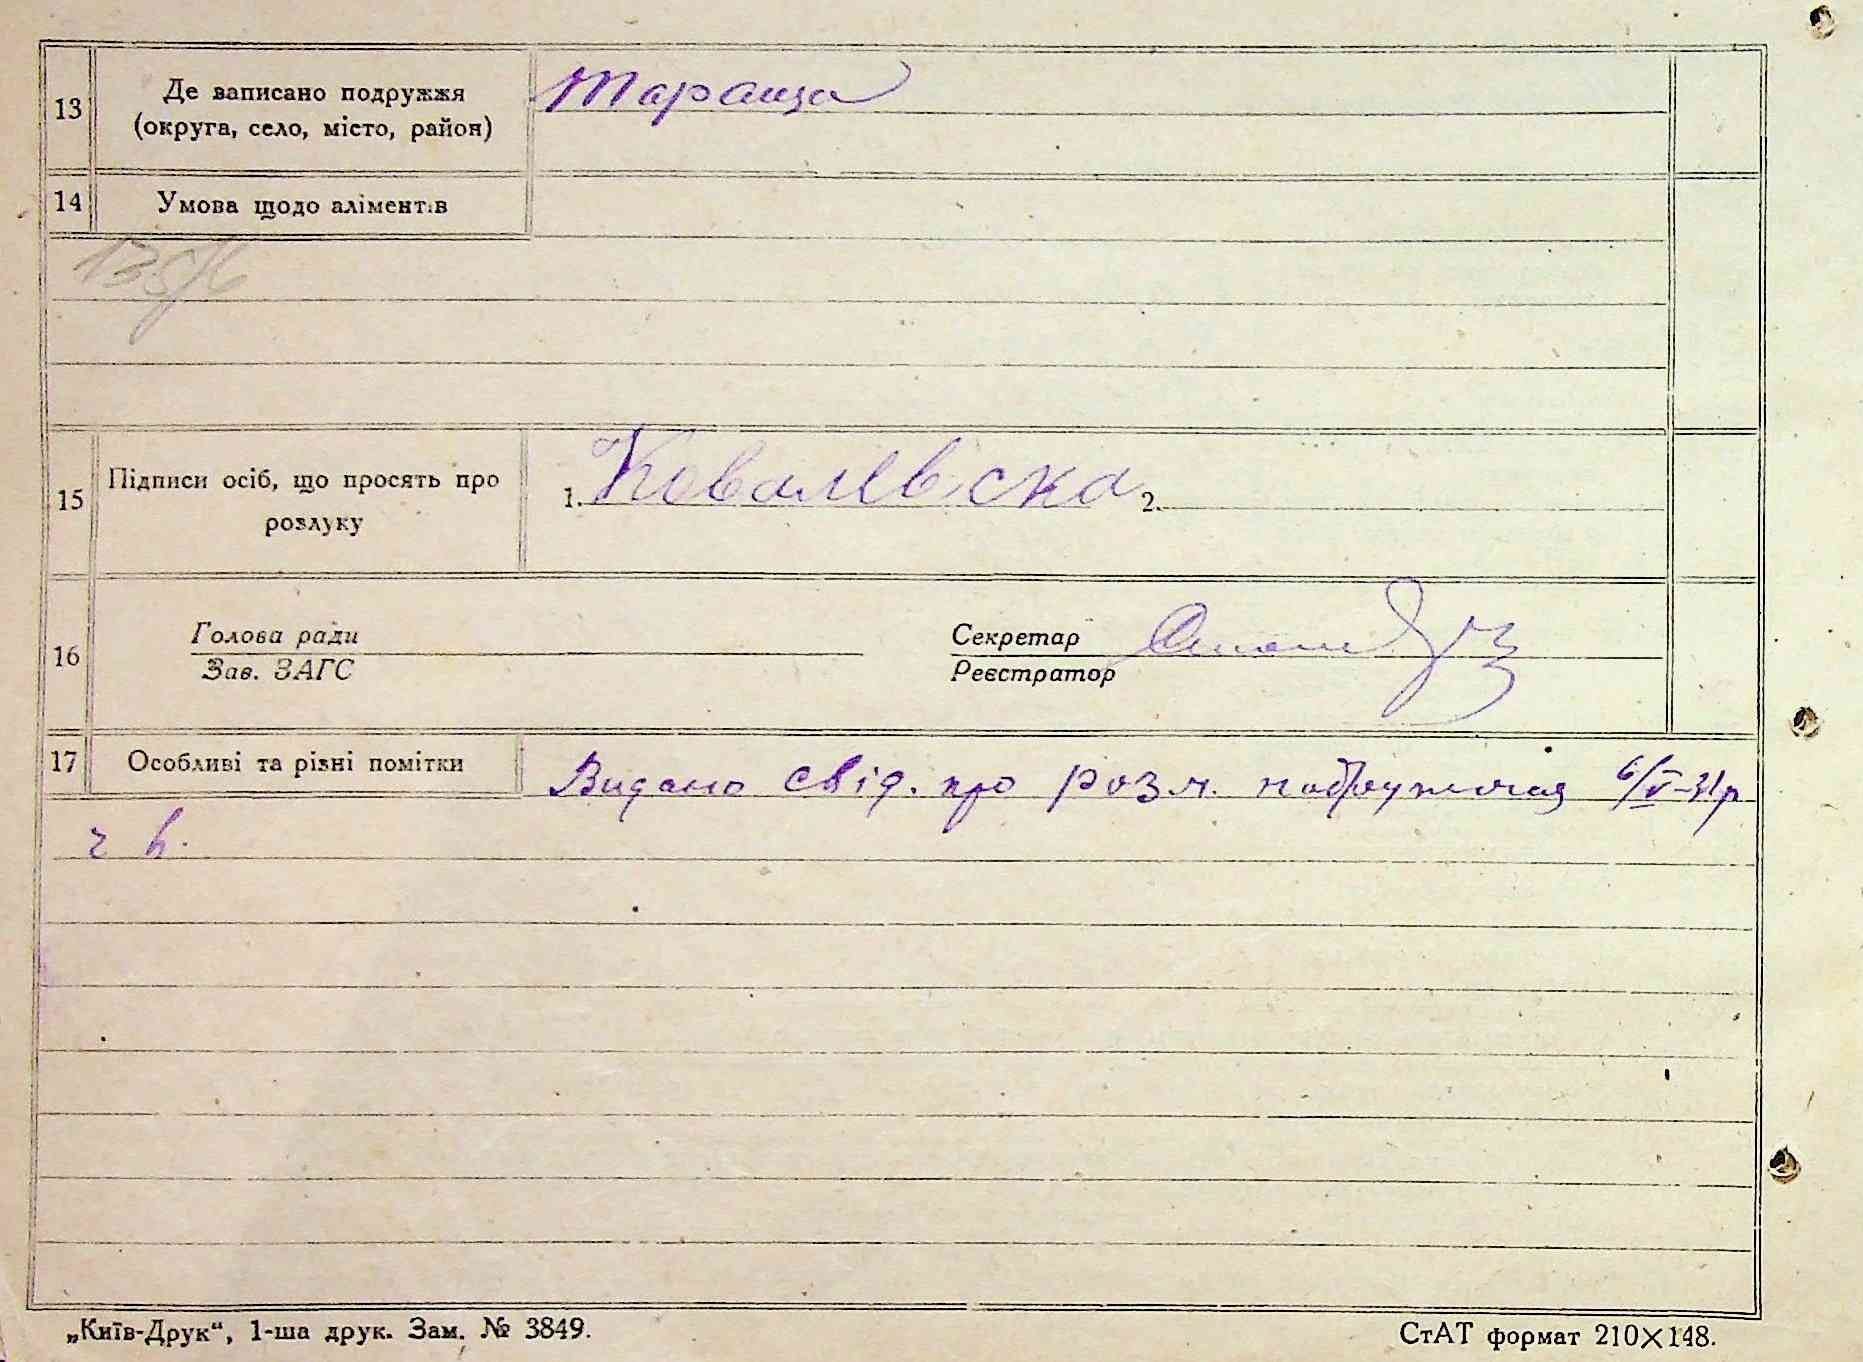 13
Де записано подружжя
(округа, село, місто, район)
Тараща
14
Умова щодо аліментів
15
Підписи осіб, що просять про
розлуку
1. Ковалевска 2.
16
Голова ради
Зав. ЗАГС
Секретар
Реєстратор
17
Особливі та різні помітки
Видано свід. про розл. 6/V-31р
„Київ-Друк“, 1-ша друк. Зам. № 3849.
СтАТ формат 210×148.